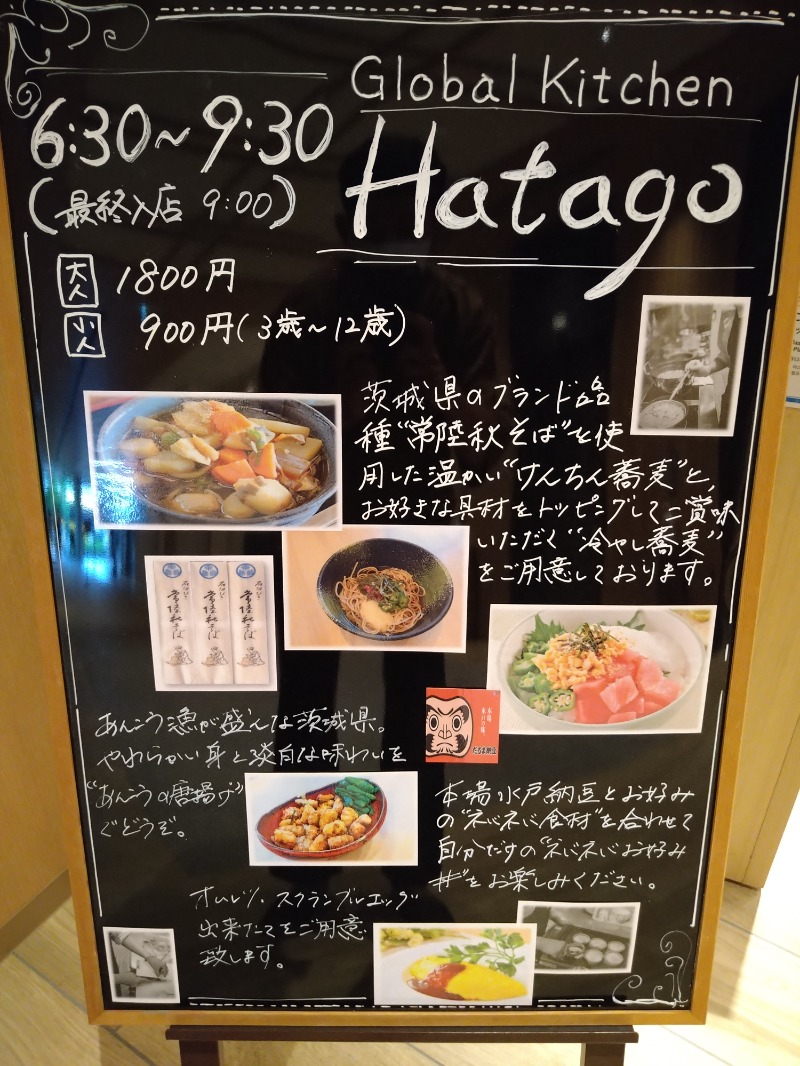 Global Kitchen
Hatago
6:30~9:30
(最終入店 9:00)
大人 1800円
小人 900円(3歳~12歳)
茨城県のブランド品
種“常陸秋そば”を使
用した温かい“けんちん蕎麦”と、
お好きな具材をトッピングしてご賞味
いただく“冷やし蕎麦”
をご用意しております。
常陸秋そば
常陸秋そば
常陸秋そば
あんこう漁が盛んな茨城県。
やわらかい身と淡白な味わいを
“あんこうの唐揚げ”
でどうぞ。
本場
水戸の味
だるま納豆
本場水戸納豆とお好み
の“ネバネバ食材”を合わせて
自分だけの“ネバネバお好み
丼”をお楽しみください。
オムレツ、スクランブルエッグ
出来たてをご用意
致します。